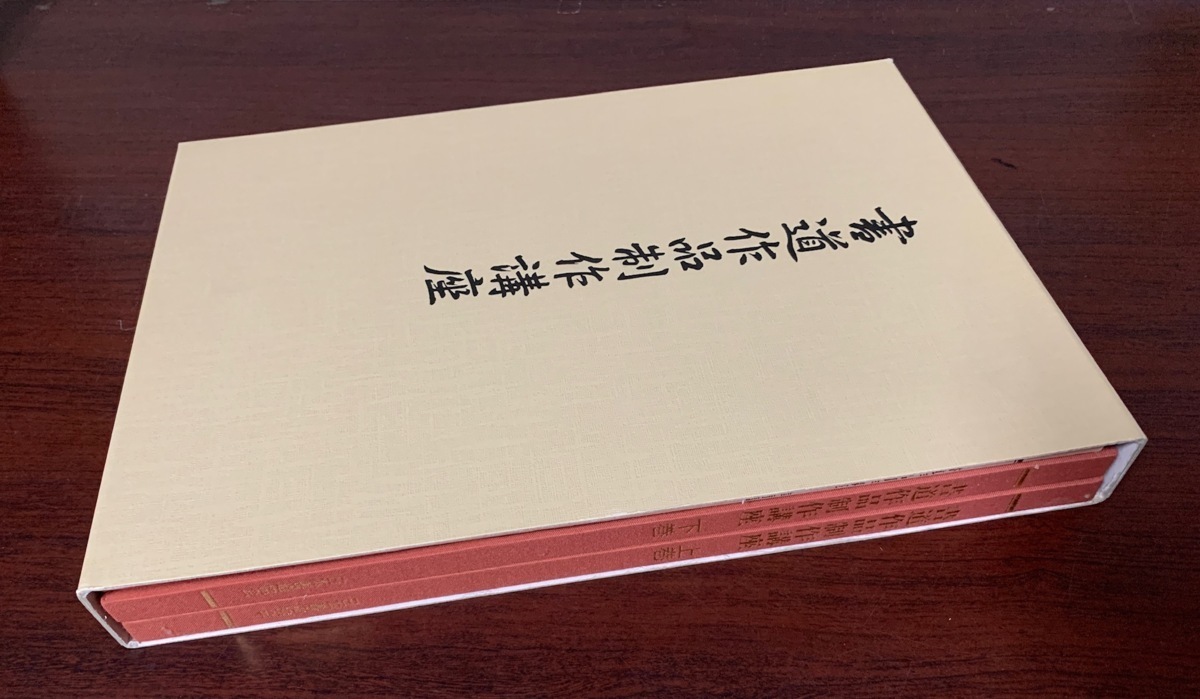 書道作品制作講座
書道作品制作講座 下巻
書道作品制作講座 上巻